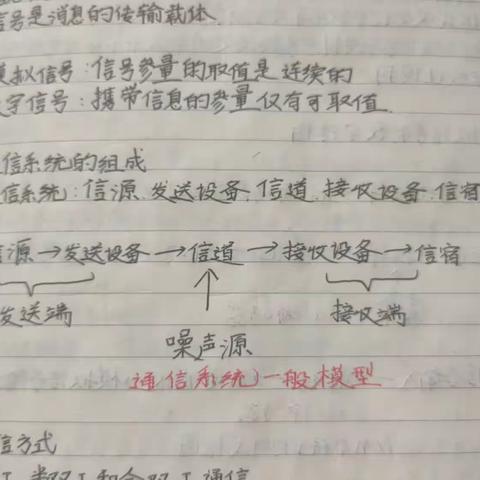 信号是消息的传输载体
模拟信号:信号参量的取值是连续的
数字信号:携带信息的参量仅有可取值
信系统的组成
信系统:信源、发送设备、信道、接收设备、信宿
信源→发送设备→信道→接收设备→信宿
发送端 接收端
噪声源
通信系统)一般模型
信方式
半双工和全双工通信